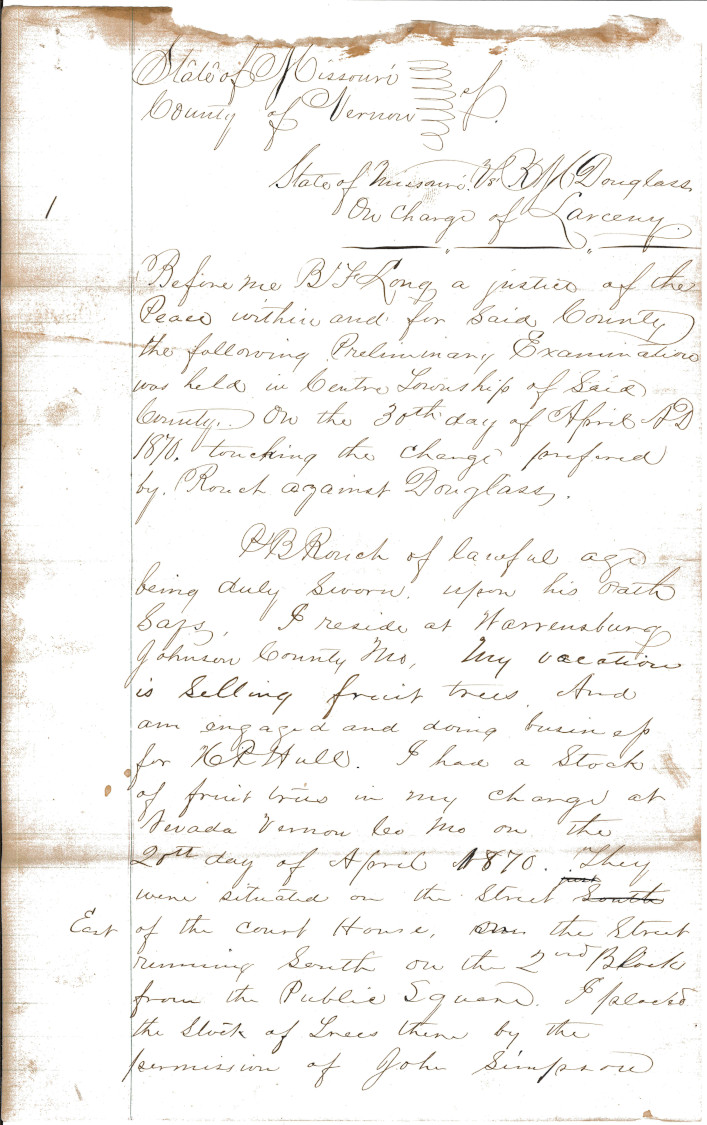 State of Missouri
County of Vernon } ss.
State of Missouri. Vs R M Douglass
On charge of Larceny.
1
Before me B F Long a justice of the
Peace within and for Said County
the following Preliminary Examination
was held in Centre Township of Said
County. On the 30th day of April AD
1870. touching the charge prefered
by. Rouch against Douglass.
P B Rouch of lawful age
being duly sworn. upon his oath
Says, I reside at Warrensburg
Johnson County Mo, My vocation
is Selling fruit trees. And
am engaged and doing business
for H P Hull. I had a Stock
of fruit trees in my charge at
Nevada Vernon Co Mo on the
20th day of April 1870. They
were situated on the Street South
East of the court House, on the Street
running South on the 2nd Block
from the Public Square. I placed
the Stock of Trees there by the
permission of John Simpson